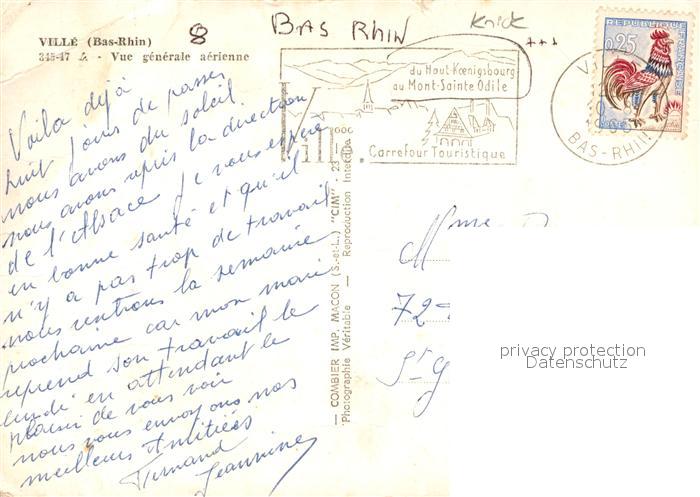 VILLÉ (Bas-Rhin)
345-47 A. - Vue générale aérienne
8
BAS RHIN
Knick
du Haut-Kœnigsbourg
au Mont-Sainte Odile
Carrefour Touristique
REPUBLIQUE
0,25
BAS-RHIN
Voila déjà
huit jours de passés
nous avons du soleil.
nous avons après la direction
de l'Alsace je vous espère
en bonne santé et qu'il
n'y a pas trop de travail
nous rentrons la semaine
prochaine car mon mari
reprend son travail le
lundi en attendant le
plaisir de vous voir
nous vous envoyons nos
meilleurs Amitiées
Fernand
Jeannine
— COMBIER IMP. MACON (S.-et-L.) "CIM" - 23
Photographie Véritable — Reproduction Interdite
Mme
72
St G
privacy protection
Datenschutz